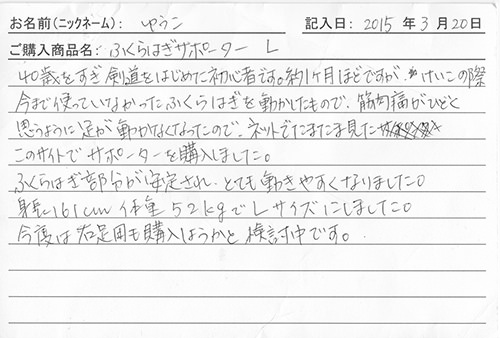 お名前(ニックネーム): ゆうこ 記入日: 2015 年 3 月 20 日
ご購入商品名: ふくらはぎサポーター L
40歳をすぎ剣道をはじめた初心者です。約1ヶ月ほどですが、けいこの際
今まで使っていなかったふくらはぎを動かしたもので、筋肉痛がひどく
思うように足が動かなくなったので、ネットでたまたま見た
このサイトでサポーターを購入しました。
ふくらはぎ部分が安定され、とても動きやすくなりました。
身長161cm 体重52kgでLサイズにしました。
今度は右足用も購入しようかと検討中です。